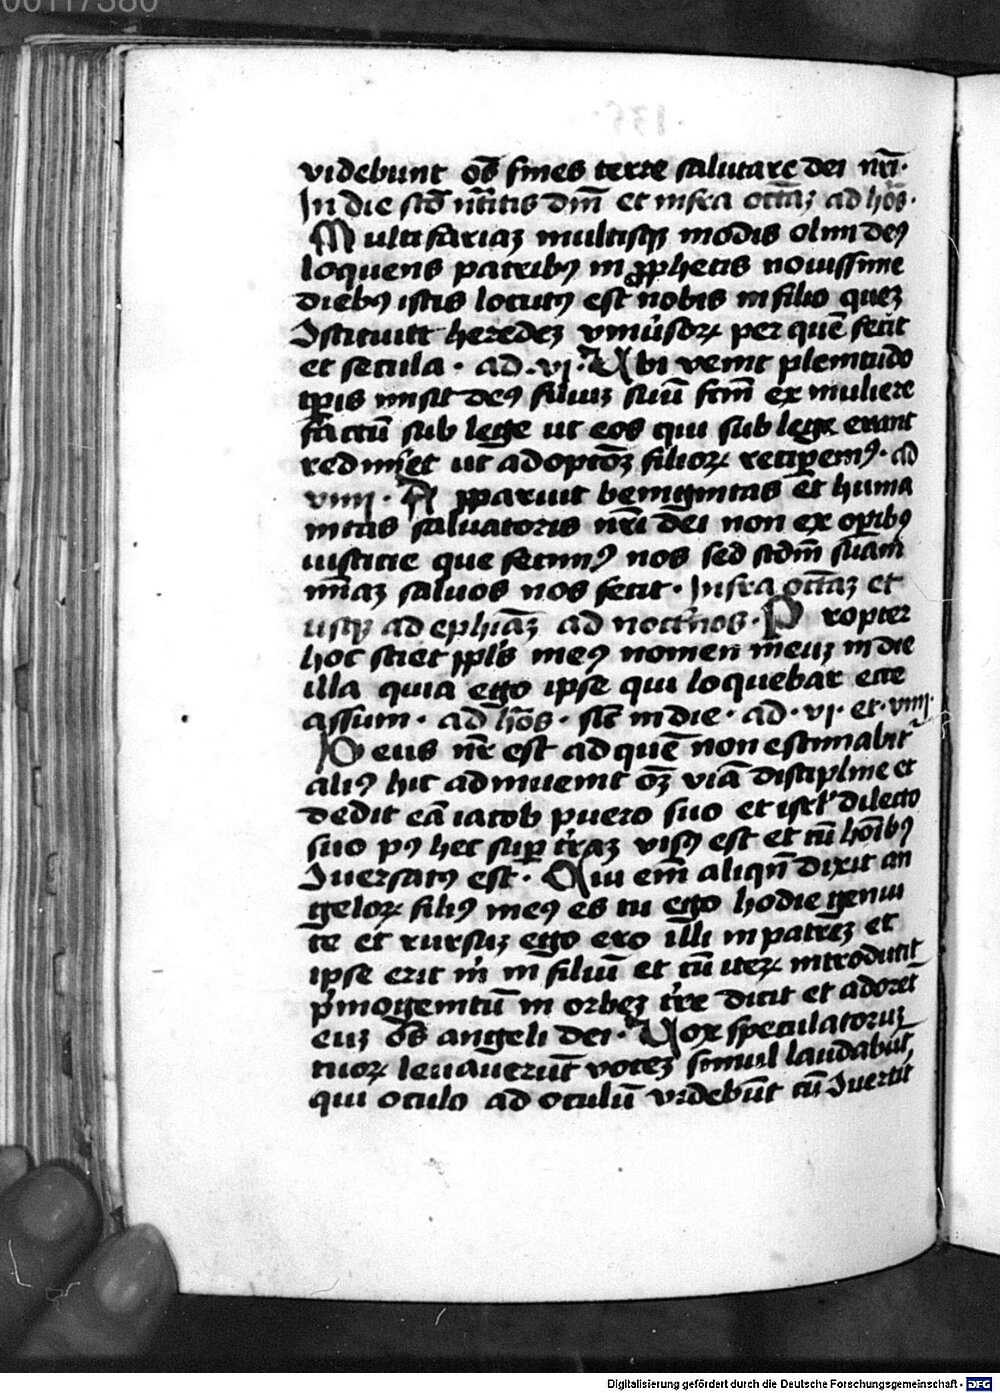 00117380
·136·
videbunt oēs fines terre salutare dei nr̄i·
In die sc̄o nat̄itis dn̄i et infra octāꝫ ad hōs·
Multifariaꝫ multisqꝫ modis olim deꝰ
loquens patribꝰ in ꝓphetis novissime
diebꝰ istis locutꝰ est nobis in filio queꝫ
ꝯstituitt heredeꝫ vniūsorꝝ per quē fecit
et secula · ad · vj · Ubi venit plenitudo
tꝑis misit deꝰ filiuꝫ suū fcm̄ ex muliere
fāctū sub lege ut eos qui sub lege erant
redimēt ut adoptōꝫ filiorꝝ reciꝑemꝰ · ad
viiij · Apparuit benignitas et huma
nitas saluatoris nr̄i dei non ex oꝑibꝰ
iusticie que fecimꝰ nos sed scdm̄ suam
mīaꝫ saluos nos fecit · Infra octāꝫ et
usqꝫ ad ephīaꝫ ad noct̄nos · Propter
hoc sciet ppl̄s meꝰ nomen meuꝫ in die
illa quia ego ipse qui loquebar ecce
assum · ad hōs · sic̄ in die · ad · vj · et · viiij ·
Deus nr̄ est ad quē non estimabit̄
aliꝰ hic adinuenit oēꝫ viā discipline et
dedit eā iacob puero suo et isrl̄ dilecto
suo pꝰ hec suꝑ tr̄aꝫ visꝰ est et cū hōibꝰ
ꝯuersatꝰ est · Cui em̄ aliqn̄ dixit an
gelorꝝ filiꝰ meꝰ es tu ego hodie genui
te et rursuꝫ ego ero illi in patreꝫ et
ipse erit m̄ in filiū et cū iterꝝ introducit
pͥmogenitū in orbeꝫ tr̄e dicit et adorēt
euꝫ oēs angeli dei · Vox speculatoruꝫ
tuorꝝ levaverūt voceꝫ simul laudabūt
qui oculo ad oculū videbūt cū ꝯuertit
Digitalisierung gefördert durch die Deutsche Forschungsgemeinschaft - DFG